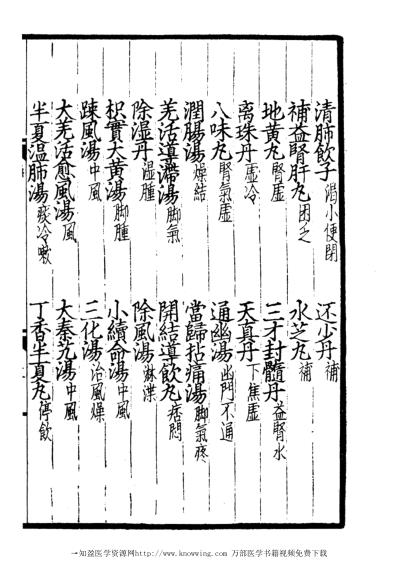 清肺飲子渴小便閉 还少丹補
補益腎肝丸困乏 水芝丸補
地黃丸腎虛 三才封髓丹益腎水
离珠丹虛冷 天真丹下焦虛
八味丸腎氣虛 通幽湯幽門不通
潤腸湯燥結 當歸拈痛湯腳氣疼
羌活導滯湯腳氣 開結導飲丸痞悶
除湿丹湿腫 除風湯麻渫
枳實大黃湯腳腫 小續命湯中風
踈風湯中風 三化湯治風燥
大羌活愈風湯風 大秦艽湯中風
半夏温肺湯痰冷嗽 丁香半夏丸停飲
一知盈医学资源网http://www.knowing.com 万部医学书籍视频免费下载